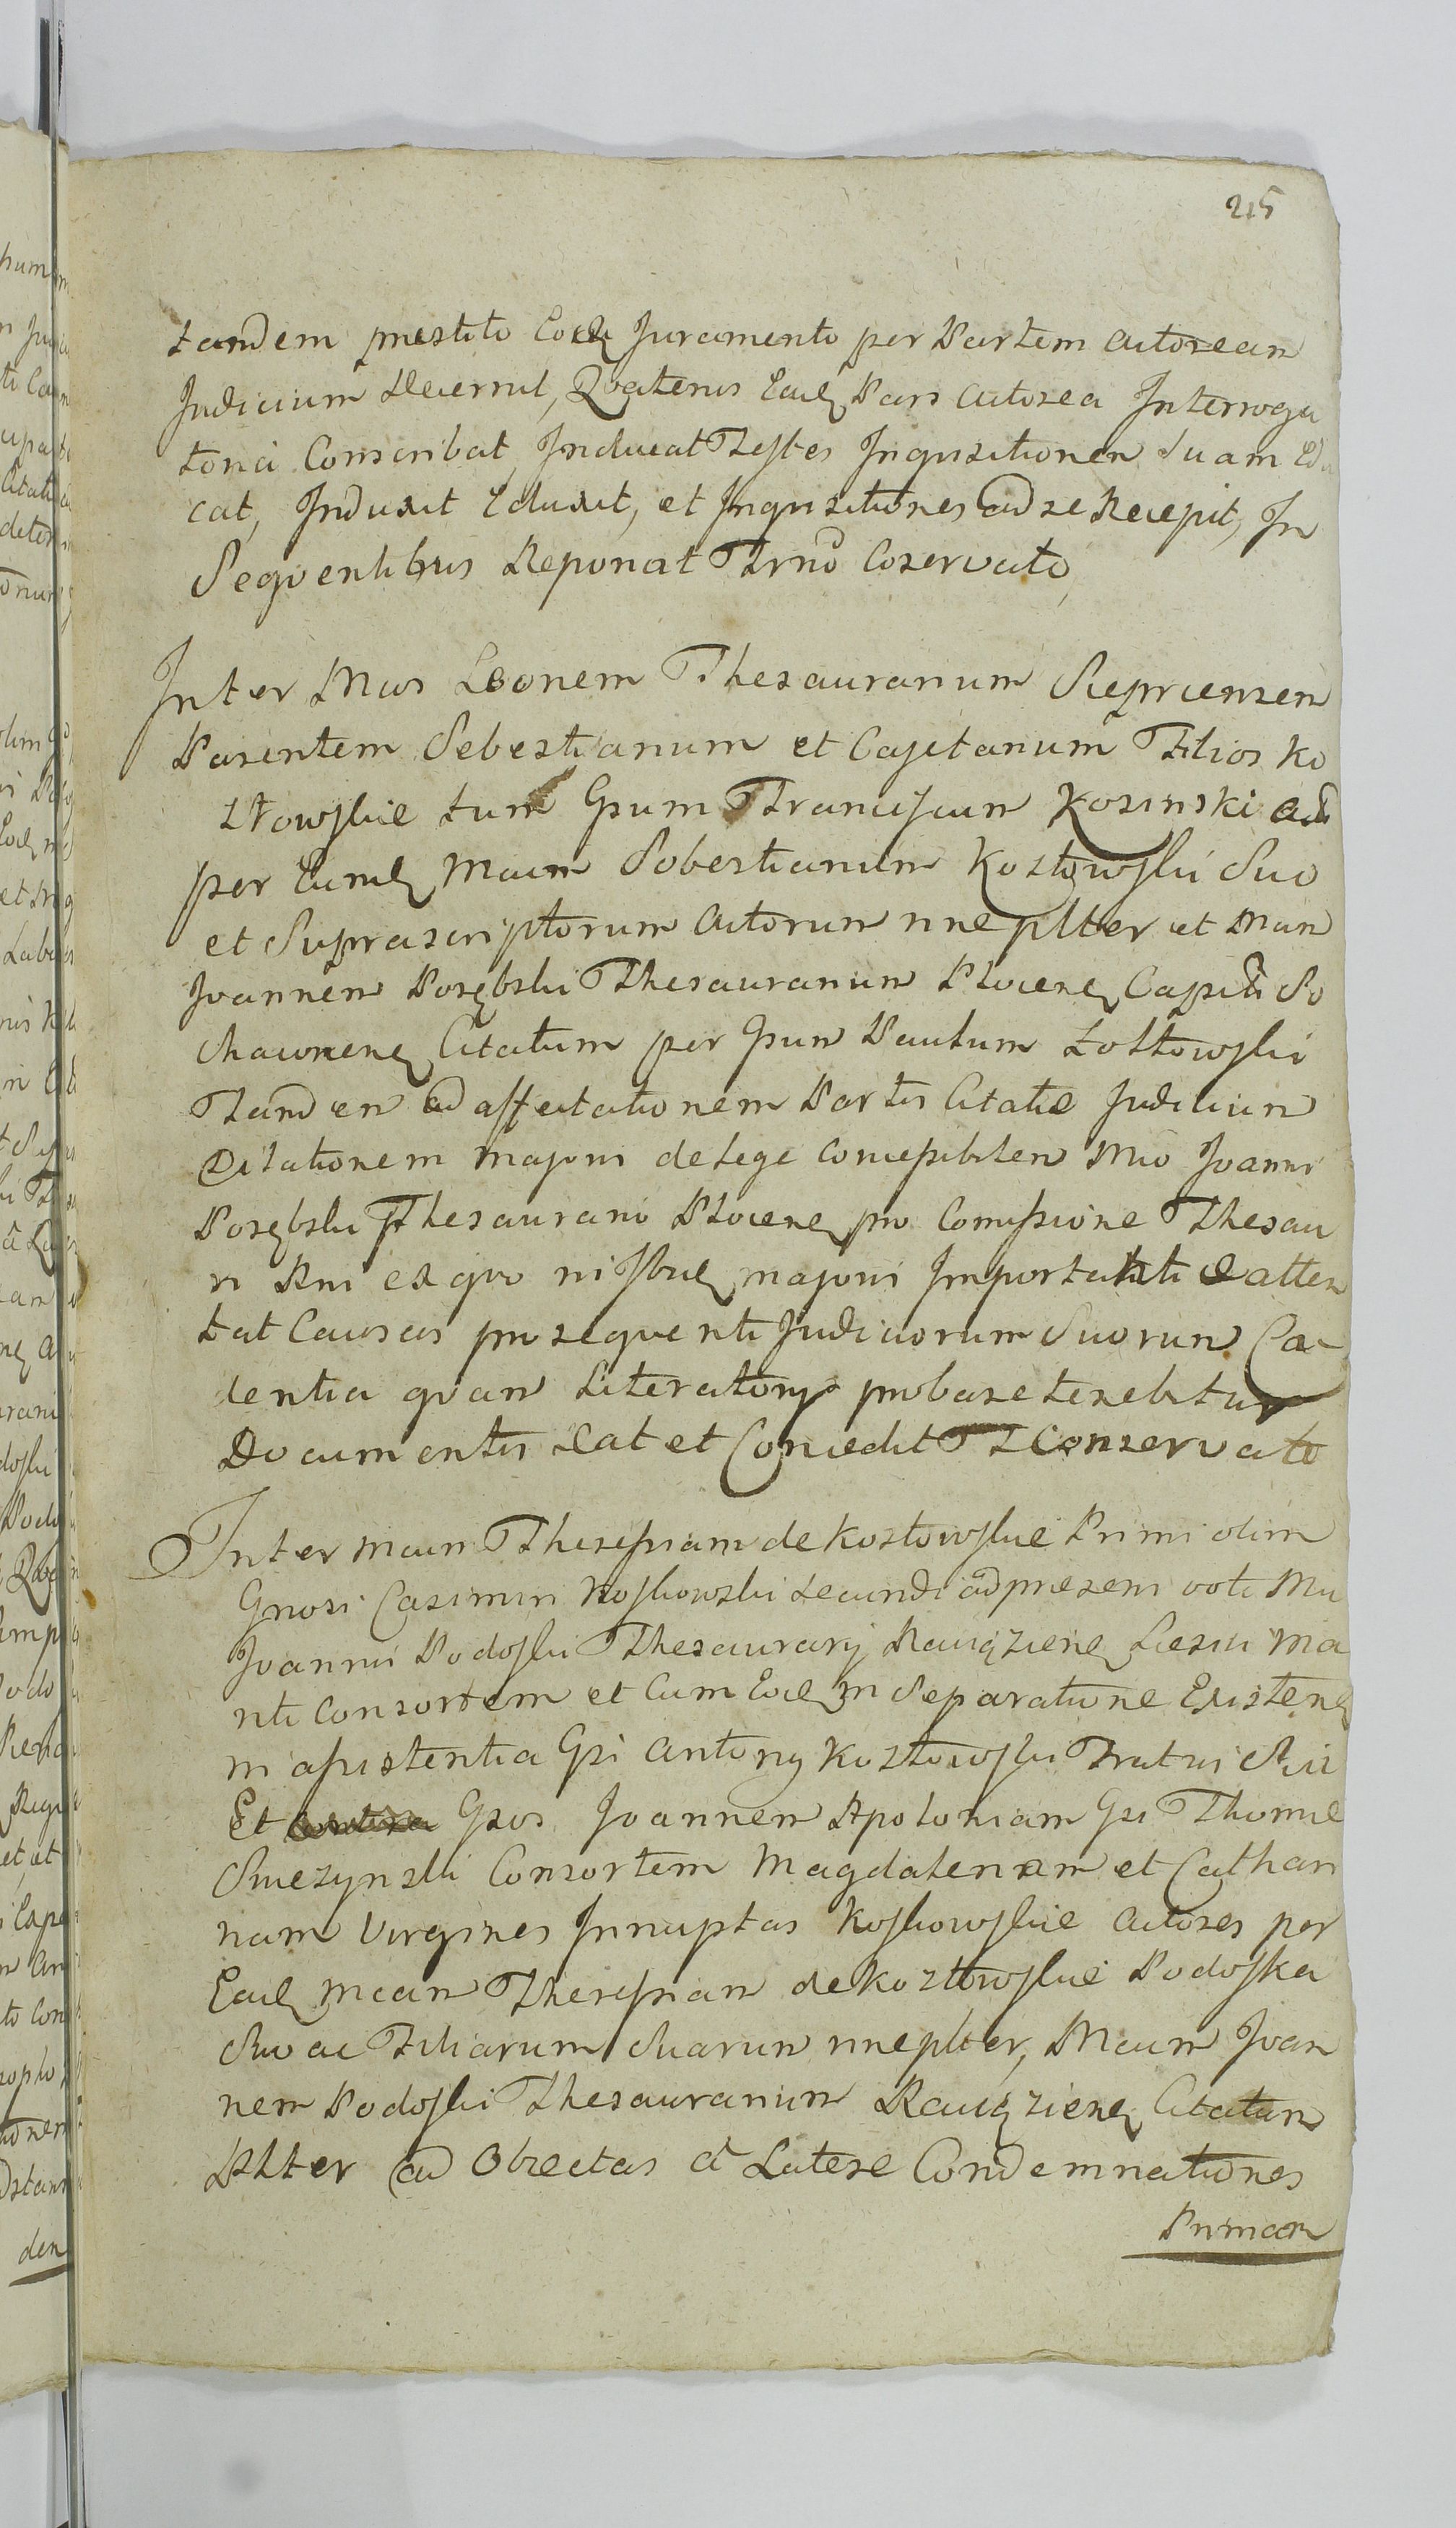 215
tandem præstito Eoq Juramento per Partem Actoream
Judicium Decernit, Qvatenus Eadq Pars Actorea Interroga
toria Conscribat, Inducat Testes Inqvisitionem Suam Edu
cat, Induxit Eduxit, et Inqvisitiones ad se Recepit, In
Seqventibus Reponat Trno Coservato,
Inter Mcos Leonem Thesaurarium Sieprcensem
Parentem Sebestyanum et Cajetanum Filios Ko
złowskie tum Gsum Franciscum Kosinski Act
per Eumq Mcum Sebestianum Kozłowski Suo
et Suprascriptorum Actorum nne pltter et Mcum
Joannem Porębski Thesaurarium Plocenq Capita So
chaczovienq Citatum per Gsum Paulum Łottowski
Tandem ad affectationem Partis Citatæ Judicium
Dilationem majoris de lege concepibilem Mco Joanni
Porębski Thesaurario Plocenq pro Comissione Thesau
ri Rni ex qvo in Ibidq majoris Importantiæ atten
tat Causas pro seqventi Judiciorum Suorum Ca
dentia qvam Literatorys probare tenebitur
Documentis Dat et Concedit T Conservato
Inter Mcam Theressiam de Kozłowskie Primi olim
Gnosi Casimiri Koskowski secundi ad præsens voti Mci
Joannis Podoski Thesaurarij Raciążienq Liesiu Ma
riti Consortem et Cum Eodq in Separatione Existenq
in assistentia Gsi Antonij Kozłowski Fratris Sui
Et Gsos Joannem Apoloniam Gsi Thomæ
Smezynski Consortem Magdalenam et Cathari
nam Virgines Innuptas Koskowskie Actores per
Eadq Mcam Theressiam de Kozłowskie Podoska
Suo ac Filiarum Suarum nne pltter, Mcum Joan
nem Podoski Thesaurarium Raciążienq Citatum
Pltter ad Obiectas à Latere Condemnationes
Primam